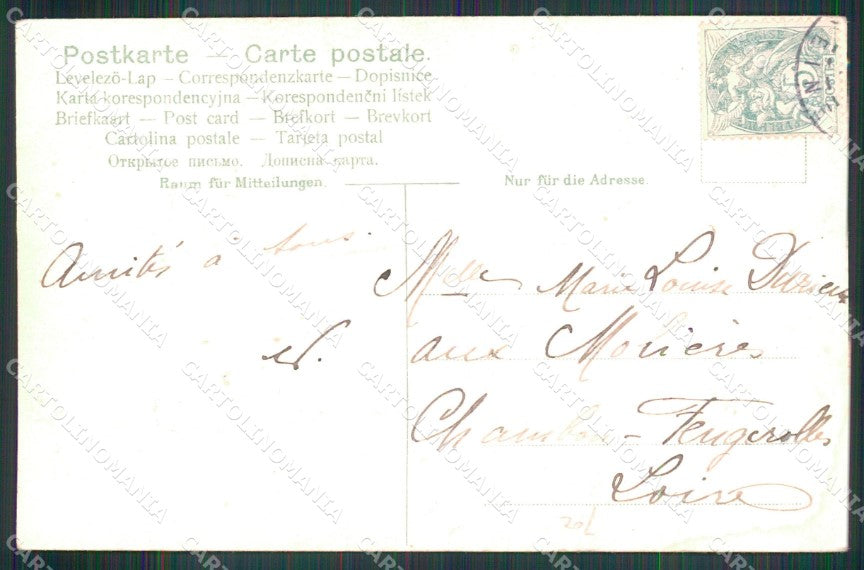 Postkarte — Carte postale.
Levelező-Lap — Correspondenzkarte — Dopisnice
Karta korespondencyjna — Korespondenční lístek
Briefkaart — Post card — Brefkort — Brevkort
Cartolina postale — Tarjeta postal
Открытое письмо. Дописна карта.
Raum für Mitteilungen.
Nur für die Adresse.
Amitiés à tous.
Melle Marie Louise
aux
Chambon-Feugerolles
Loire
CARTOLINOMANIA